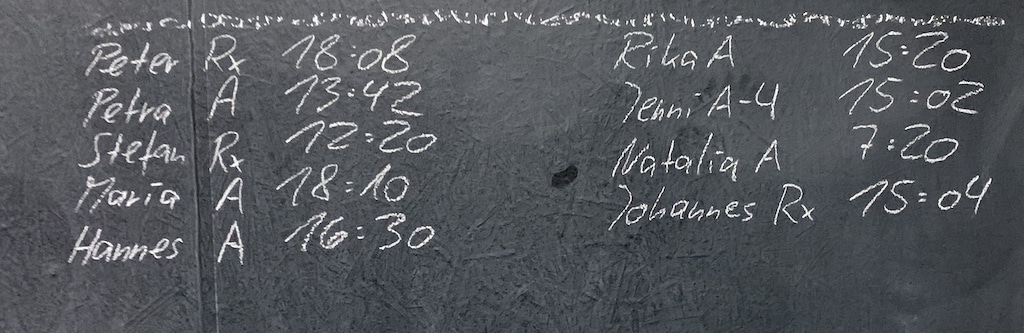 Peter Rx 18:08
Petra A 13:42
Stefan Rx 12:20
Maria A 18:10
Hannes A 16:30
Rika A 15:20
Jenni A-4 15:02
Natalia A 7:20
Johannes Rx 15:04